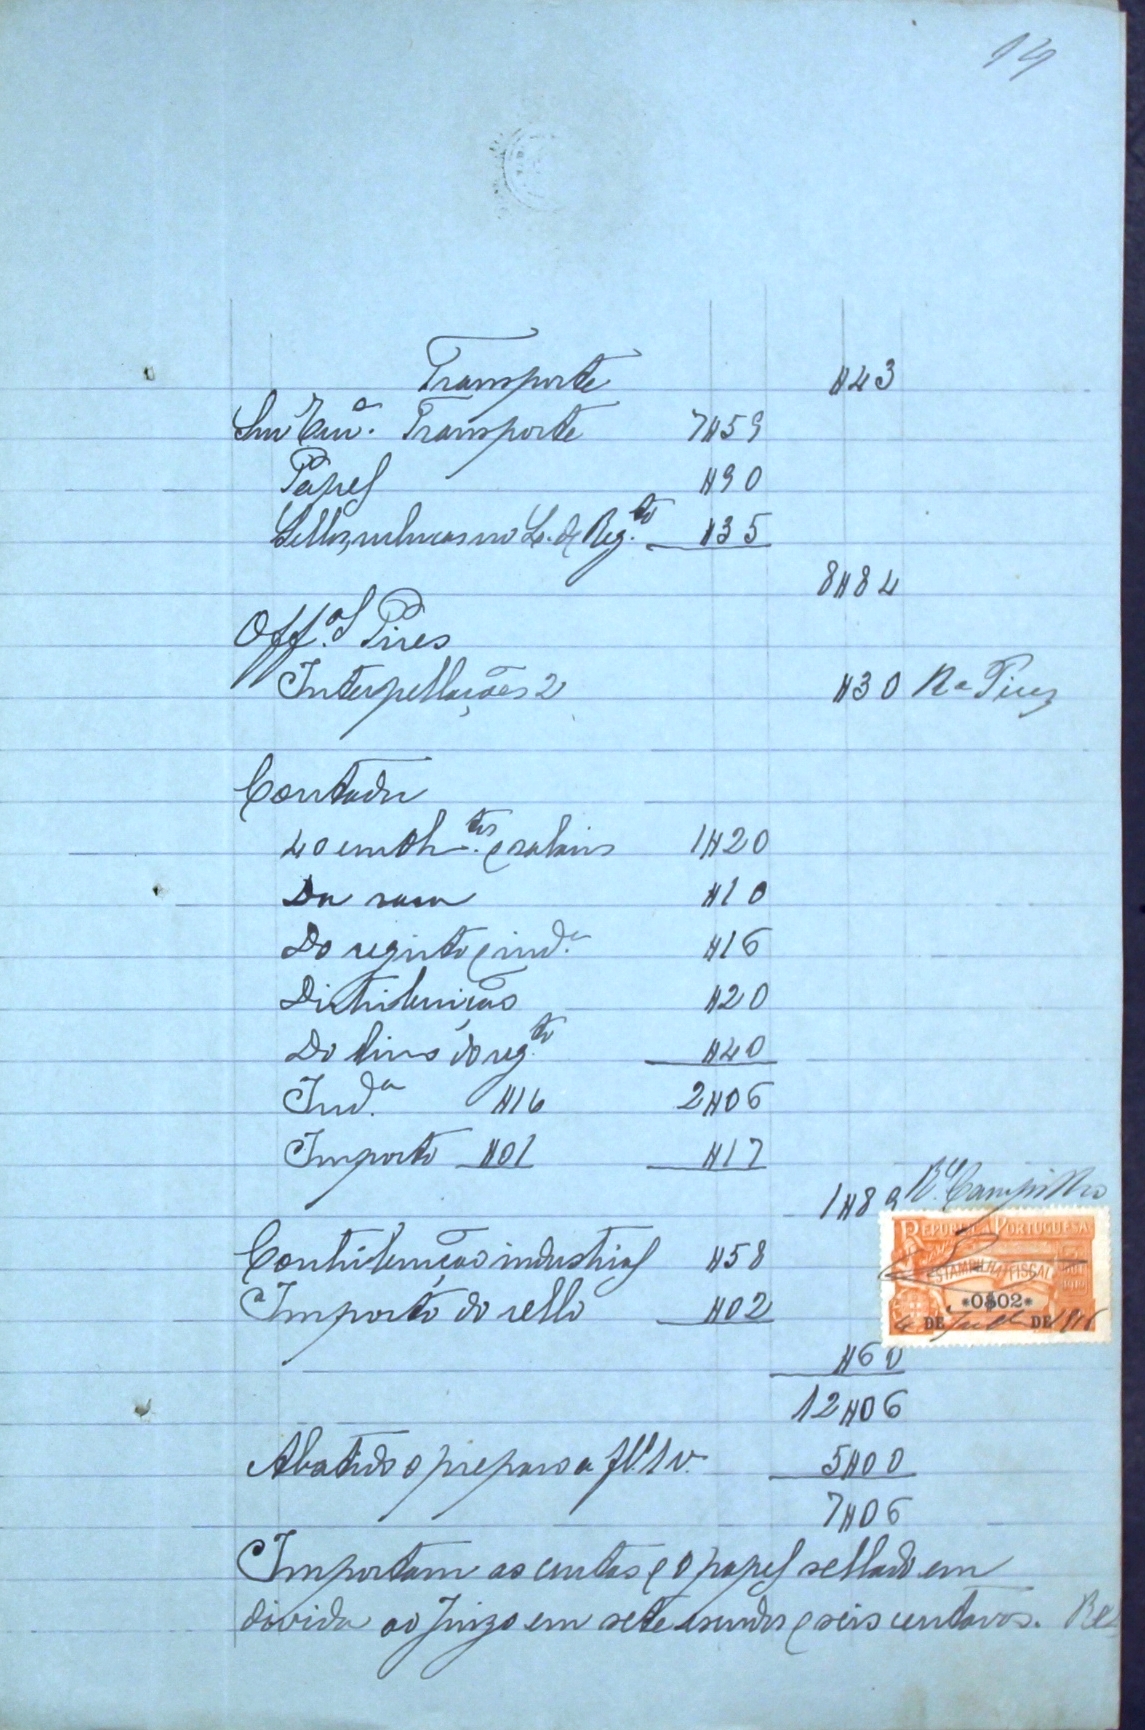 14
Transporte $43
Transporte 7$59
Papel $90
Sellos L.º de Reg.to $35
8$84
Off.al Pires
Interpellações 2 $30 R.e Pires
Contador
40 e rasa 1$20
Da rasa $10
Do registo e ind.a $16
Distribuição $20
Do livro do reg.to $40
Ind.a $16 2$06
Imposto $01 $17
1$89 R.e Campilho
Contribuição industrial $58
Imposto do sello $02
REPUBLICA PORTUGUESA
ESTAMPILHA FISCAL
0$02
4 DE Julho DE 1916
$60
12$06
Abatido o preparo a fl. 1 v. 5$00
7$06
Importam as custas e o papel sellado em
divida ao Juizo em sete escudos e seis centavos.